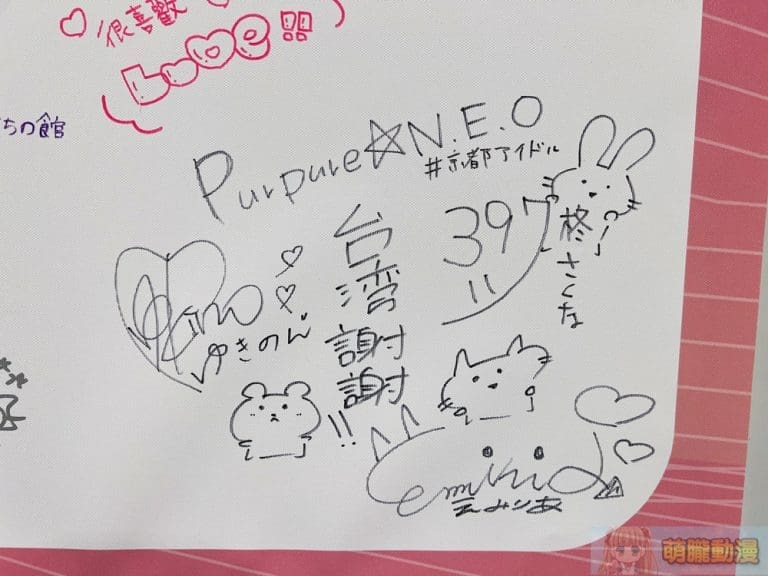 很喜歡
Love!!
ちの館
Purpure☆N.E.O
#京都アイドル
台湾謝謝!!
397
柊さくな
ゆきのん
えみりあ
萌朧動漫